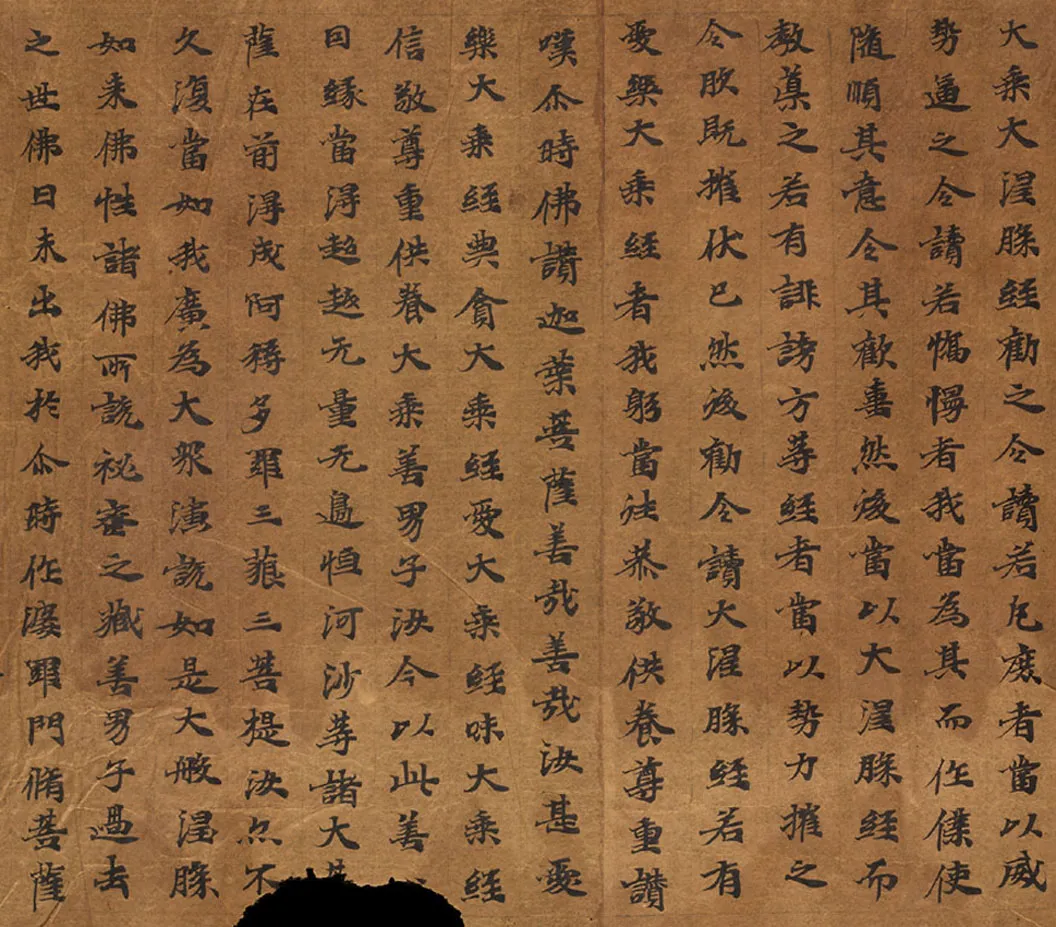 大乗大涅槃経勸之令讀若凡庶者當以威
勢逼之令讀若憍慢者我當為其而作僕使
随順其意令其歡喜然後當以大涅槃経而
教導之若有誹謗方等経者當以勢力摧之
令伏既摧伏已然後勸令讀大涅槃経若有
愛樂大乗経者我躬當往恭敬供養尊重讃
嘆尒時佛讃迦葉菩薩善哉善哉汝甚愛
樂大乗経典貪大乗経愛大乗経味大乗経
信敬尊重供養大乗善男子汝今以此善
因縁當得超越无量无邊恒河沙等諸大
薩在前得成阿耨多羅三藐三菩提汝亦不
久復當如我廣為大衆演説如是大般涅槃
如来佛性諸佛所説祕密之藏善男子過去
之世佛日未出我於尒時作婆羅門脩菩薩